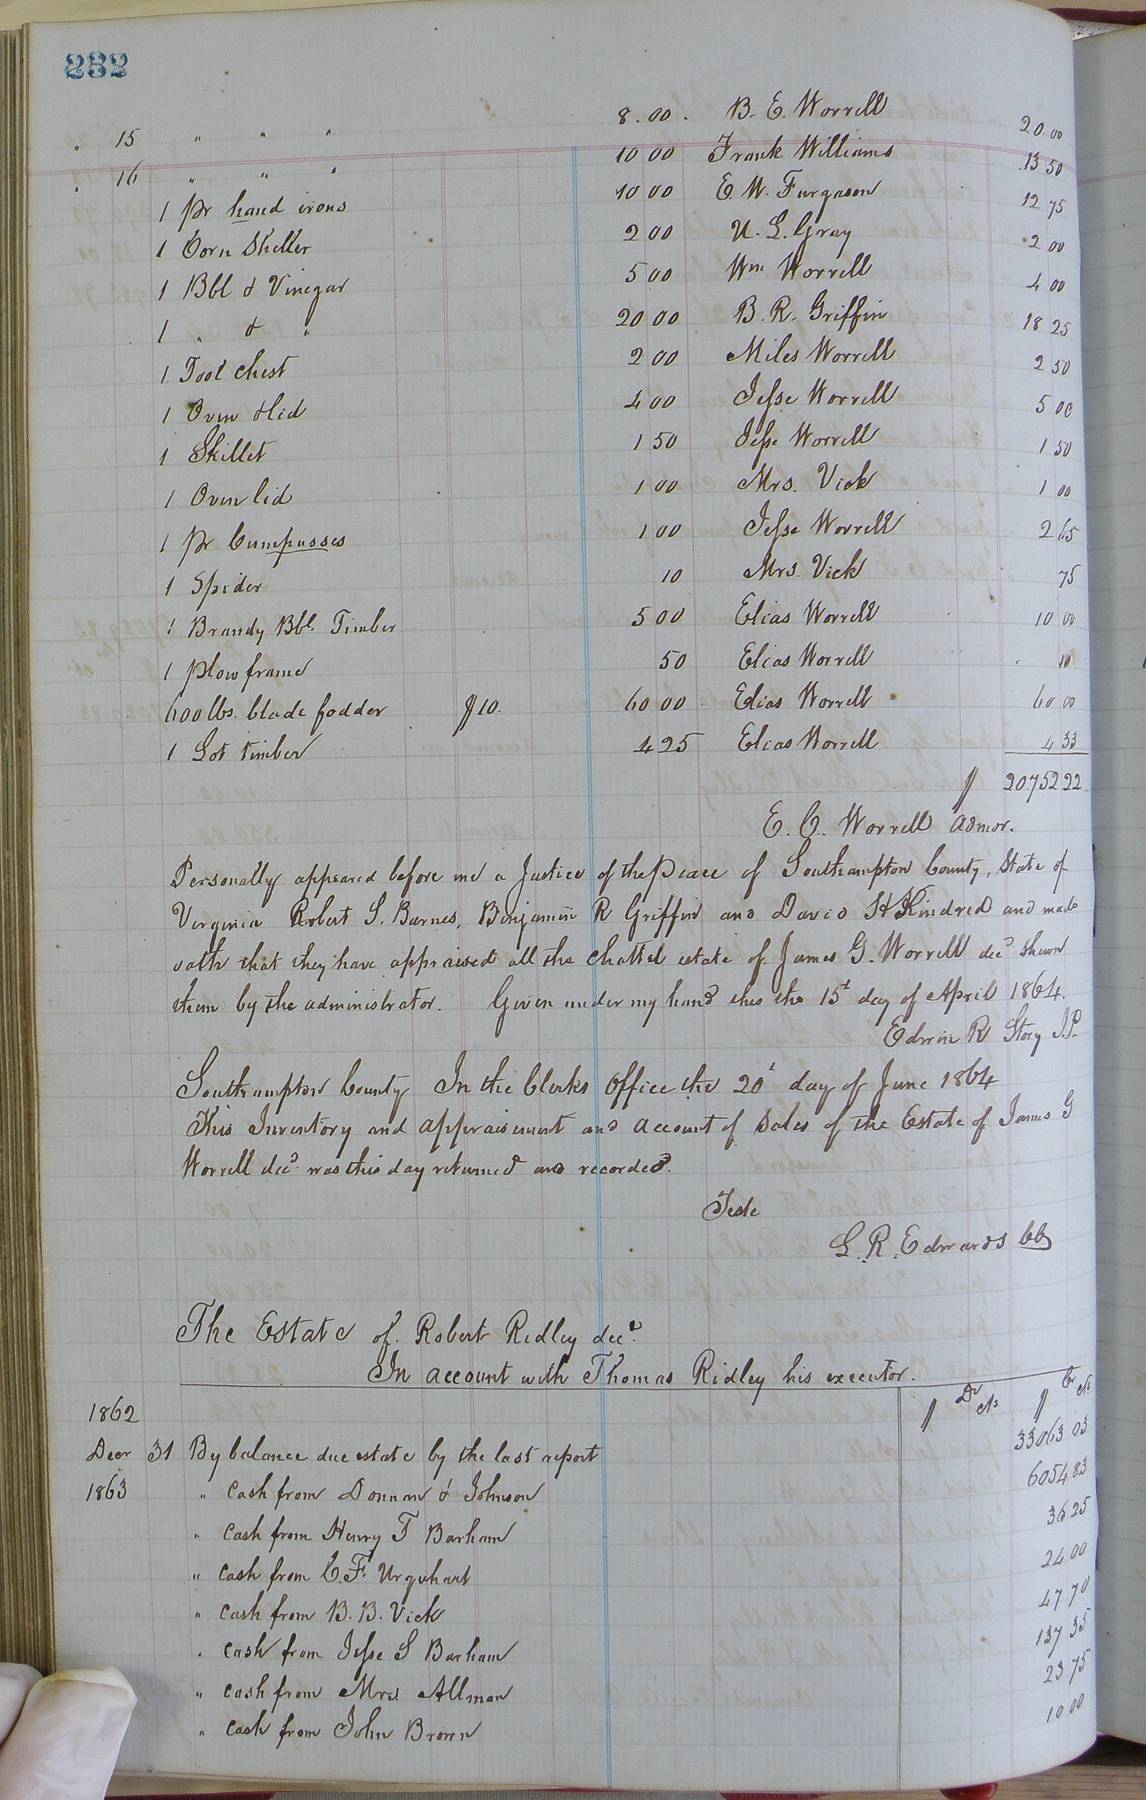 232
" 15 " " " 8.00. B. E. Worrell 20.00
" 16 " " " 10 00 Frank Williams 13 50
1 pr hand irons 10 00 E. W. Furgason 12 75
1 Corn Sheller 2 00 U. L. Gray 2 00
1 Bbl & Vinegar 5 00 Wm Worrell 4 00
1 " & " 20 00 B. R. Griffin 18 25
1 Tool chest 2 00 Miles Worrell 2 50
1 Oven & lid 4 00 Jesse Worrell 5 00
1 Skillet 1 50 Jesse Worrell 1 50
1 Oven lid 1 00 Mrs. Vick 1 00
1 pr Cumpasses 1 00 Jesse Worrell 2 65
1 Spider 10 Mrs. Vick 75
1 Brandy Bbl. Timber 5 00 Elias Worrell 10 00
1 plow frame 50 Elias Worrell 10
600 lbs. blade fodder $10. 60 00 Elias Worrell 60 00
1 Lot timber 4 25 Elias Worrell 4 33
$ 20752 22
E. C. Worrell admor.
Personally appeared before me a Justice of the peace of Southampton County, State of
Virginia Robert S. Barnes, Benjamin R Griffin and David H Kindred and made
oath that they have appraised all the chattel estate of James G. Worrell decd shewn
them by the administrator. Given under my hand this the 15t day of April 1864.
Edwin R Story J.P.
Southampton County In the Clerks Office the 20t day of June 1864
This Inventory and appraisement and account of Sales of the Estate of James G
Worrell decd was this day returned and recorded.
Teste
L. R. Edwards CC
The Estate of Robert Ridley decd.
In account with Thomas Ridley his executor.
1862 $ Dr cts $ Cr cts
Decr 31 By balance due estate by the last report 33063 03
1863 " Cash from Donnan & Johnson 6054 83
" Cash from Henry T Barham 36 25
" Cash from C. F. Urquhart 24 00
" Cash from B. B. Vick 47 70
" Cash from Jesse S Barham 137 35
" Cash from Mrs Allman 23 75
" Cash from John Brown 10 00